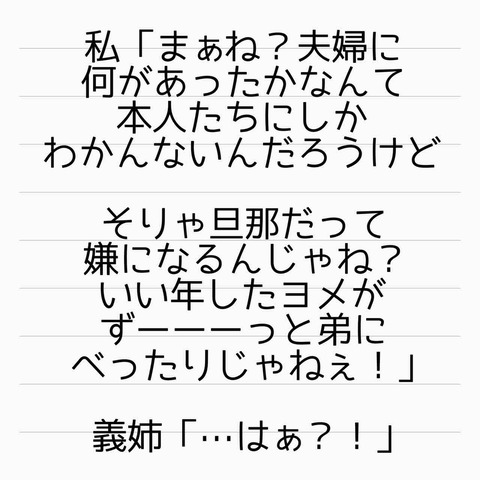 私「まぁね？夫婦に
何があったかなんて
本人たちにしか
わかんないんだろうけど
そりゃ旦那だって
嫌になるんじゃね？
いい年したヨメが
ずーーーっと弟に
べったりじゃねぇ！」
義姉「…はぁ？！」